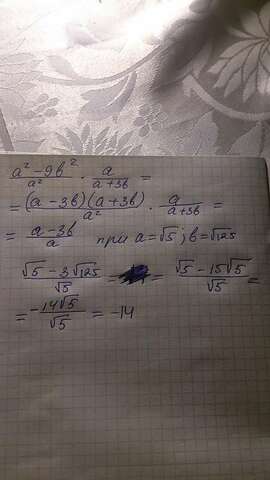 a² - 9b² / a² · a / a + 3b =
= (a - 3b)(a + 3b) / a² · a / a + 3b =
= a - 3b / a при a = √5 ; b = √125
√5 - 3√125 / √5 = = √5 - 15√5 / √5 =
= -14√5 / √5 = -14